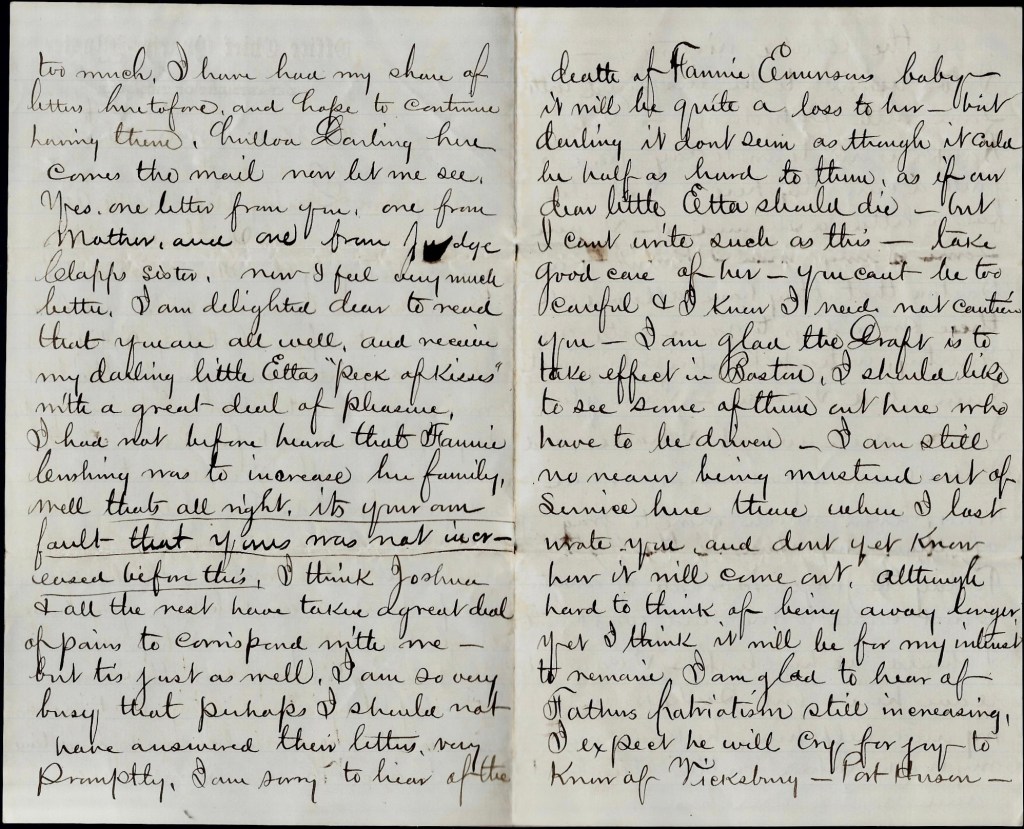 too much. I have had my share of
letters heretofore, and hope to continue
having them. hulloa Darling here
comes the mail now let me see.
Yes. one letter from you, one from
Mother, and one from Judge
Clapps sister. now I feel very much
better. I am delighted dear to read
that you are all well, and receive
my darling little Ettas "peck of kisses"
with a great deal of pleasure.
I had not before heard that Fannie
Cushing was to increase her family,
well thats all right, its your own
fault that yours was not incr-
eased before this. I think Joshua
& all the rest have taken a great deal
of pains to corrispond with me —
but tis just as well. I am so very
busy that perhaps I should not
have answered their letters, very
promptly. I am sorry to hear of the
death of Fannie Emersons baby —
it will be quite a loss to her — but
darling it dont seem as though it could
be half as hard to them, as if our
dear little Etta should die — but
I cant write such as this — take
good care of her — you cant be too
careful & I know I need not caution
you — I am glad the Draft is to
take effect in Boston, I should like
to see some of them out here who
have to be driven — I am still
no nearer being mustered out of
Service here than when I last
wrote you, and dont yet know
how it will come out, although
hard to think of being away longer
yet I think it will be for my intrest
to remain. I am glad to hear of
Fathers patriotism still increasing,
I expect he will cry for joy to
know of Vicksburg — Port Huson —